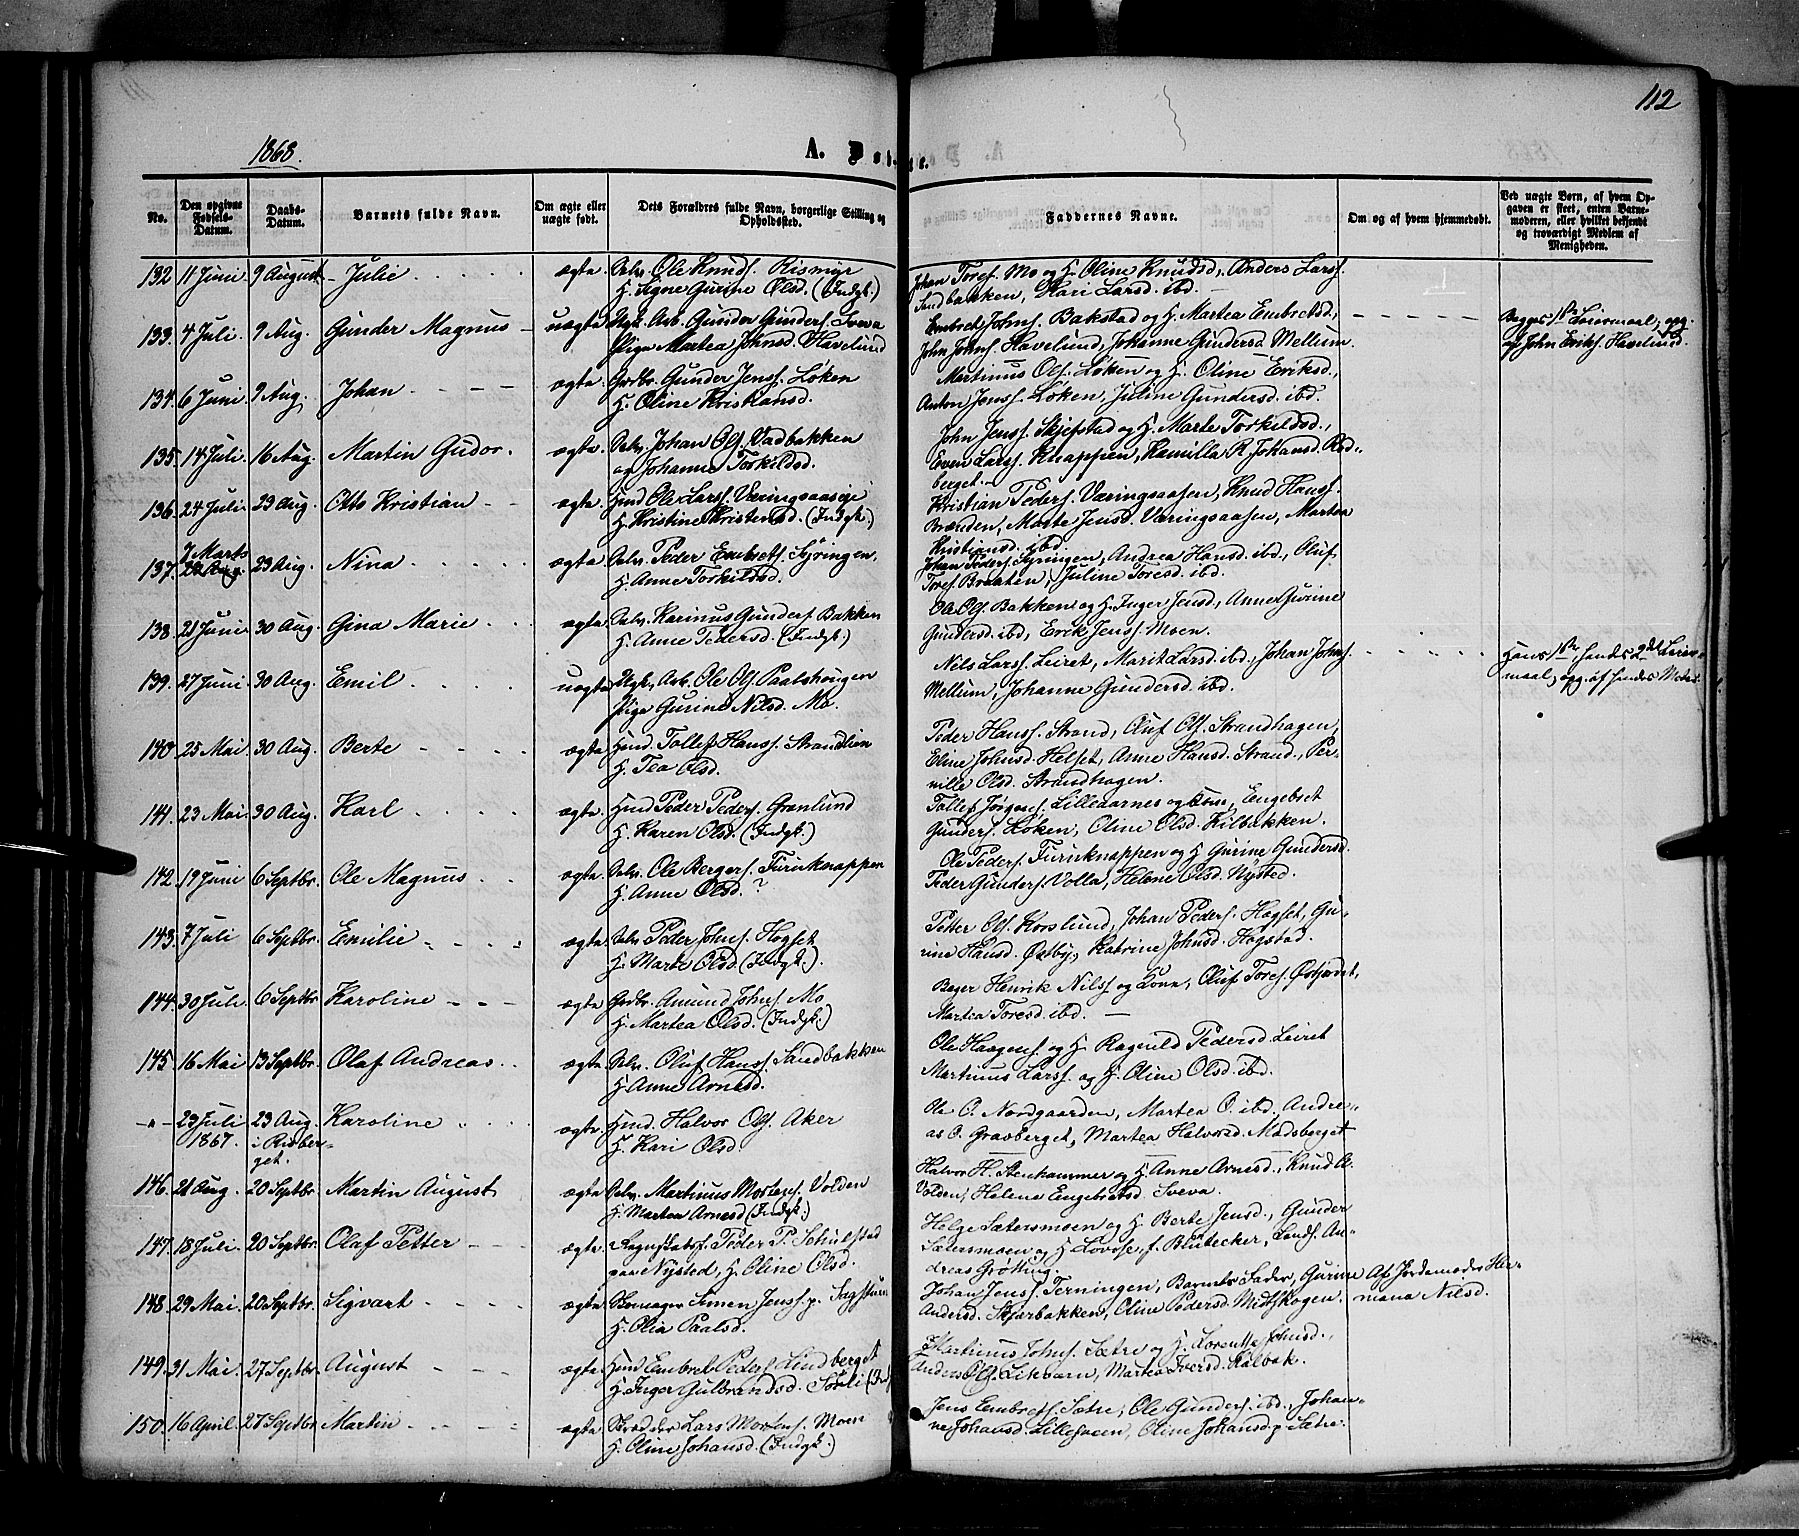 112
1868.
A. Døbte.
No.
Den opgivne Fødsels-Datum.
Daabs-Datum.
Barnets fulde Navn.
Om ægte eller uægte født.
Dets Forældres fulde Navn, borgerlige Stilling og Opholdssted.
Faddernes Navne.
Om og af hvem hjemmedøbt.
Ved uægte Børn, af hvem Opgaven er skeet, enten Barnemoderen, eller hvilket bekjendt og troværdigt Medlem af Menigheden.
132. 11 Juni 9 August Julie ægte Selv. Ole Knuds. Kismyr
H. Signe Gurine Olsd. (Indgk.)
Johan Tores. Mo og H. Oline Knudsd., Anders Larss.
Sandbakken, Kari Larsd. ibd.
133. 4 Juli 9 Aug. Gunder Magnus uægte Ugk. Arb. Gunder Gunders. Sveva
Pige Martea Johnsd. Havelund
Embret Johns. Bakstad og H. Martea Embretsd.,
John Johns. Havelund, Johanne Gundersd. Mellum.
Begges 1ste Leiermaal, opg.
af John Eriks. Havelund.
134. 6 Juni 9 Aug. Johan ægte Grdbr. Gunder Jenss. Løken
H. Oline Kristiansd.
Martinus Ols. Løken og H. Oline Eriksd.,
Anton Jenss. Løken, Juline Gundersd. ibd.
135. 14 Juli 16 Aug. Martin Gudor. ægte Selv. Johan Ols. Vadbakken
og Johanne Torkildsd.
John Jenss. Skjefstad og H. Marte Torkildsd.,
Even Larss. Knappen, Kamilla R. Johansd. Rød-
berget.
136. 24 Juli 23 Aug. Otto Kristian ægte Hmd. Ole Larss. Væringsaaseje
H. Kristine Kristensd. (Indgk.)
Kristian Peders. Væringsaasen, Knud Hanss.
Brænden, Marte Jensd. Væringsaasen, Martea
Kristiansd. ibd.
137. 7 Marts 23 Aug. Nina ægte Selv. Peder Embrets. Syringen,
H. Anne Torkildsd.
Johan Peders. Syringen, Andrea Hansd. ibd., Oluf
Tores. Braaten, Juline Toresd. ibd.
138 21 Juni 30 Aug. Gina Marie ægte Selv. Karinus Gunders. Bakken
H. Anne Pedersd. (Indgk.)
Ole Ols. Bakken og H. Inger Jensd., Anne Gurine
Gundersd. ibd., Erik Jenss. Moen.
139. 27 Juni 30 Aug. Emil uægte Ugk. Arb. Ole Ols. Paalshougen
Pige Gurine Nilsd. Mo.
Nils Larss. Leiret, Marit Larsd. ibd., Johan Johns.
Mellum, Johanne Gundersd. ibd.
Hans 1ste, hendes 2det Leier-
maal, opg. af hendes Moder.
140. 25 Mai 30 Aug. Berte ægte Hmd. Tollef Hanss. Strandlien
H. Tea Olsd.
Peder Hanss. Strand, Oluf Ols. Strandhagen,
Eline Johnsd. Helset, Anne Hansd. Strand, Per-
nille Olsd. Strandhagen.
141. 23 Mai 30 Aug. Karl ægte Hmd. Peder Peders. Granlund
H. Karen Olsd. (Indgk.)
Tollef Jørgens. Lilleaarnes og Kone, Engebret
Gunders. Løken, Oline Olsd. Kilbakken.
142. 19 Juni 6 Septbr. Ole Magnus ægte Selv. Ole Bergers. Furuknappen
H. Anne Olsd. ?
Ole Peders. Furuknappen og H. Gurine Gundersd.
Peder Gunders. Volla, Helene Olsd. Nysted.
143. 7 Juli 6 Septbr. Emilie ægte Selv. Peder Johns. Hogset
H. Marte Olsd. (Indgk.).
Petter Ols. Korslund, Johan Peders. Hogset, Gu-
rine Hansd. Østby, Katrine Johnsd. Hogstad.
144. 30 Juli 6 Septbr Karoline ægte Grdbr. Amund Johns. Mo
H. Martea Olsd. (Indgk.)
Bager Henrik Nilss. og Kone, Oluf Tores. Østfordet,
Martea Toresd. ibd.
145. 16 Mai 13 Septbr. Olaf Andreas ægte Selv. Oluf Hanss. Sandbakken
H. Anne Arnesd.
Ole Haagens. og H. Ragnild Pedersd. Leiret
Martinus Larss. og H. Oline Olsd. ibd.
-"- 23 Juli 1867. 23 Aug. i Risber-
get. Karoline ægte Hmd. Halvor Ols. Aker
H. Kari Olsd.
Ole O. Nordgaarden, Martea O. ibd., Andre-
as O. Gravberget, Martea Halvorsd. Madsberget
146. 21 Aug. 20 Septbr. Martin August ægte Selv. Martinus Mortens. Volden
H. Martea Arnesd. (Indgk.)
Halvor H. Stenhammer og H. Anne Arnesd., Knud A.
Volden, Helene Engebretsd. Sveva.
147. 18 Juli. 20 Septbr. Olaf Petter ægte Regnskabsf. Peder P. Schulstad
paa Nysted, H. Oline Olsd.
Helge Sætersmoen og H. Berte Jensd., Gunder
Sætersmoen og H. Lovise, f. Blütecker, Lands. An-
dreas Grøtting.
148. 29 Mai 20 Septbr. Sigvart ægte Skomager Simen Jenss. p. Sagstuen
H. Olia Paalsd.
Johan Jenss. Terningen, Barnets Fader, Gurine
Andersd. Skjærbakken, Oline Pedersd. Midtskogen.
Af Jordemoder Her-
mana Nilsd.
149. 31 Mai 27 Septbr. August ægte Hmd. Embret Peders. Lindberget
H. Inger Gulbrandsd. Sørli (Ind
Martinus Johns. Sætre og H. Lorentse Johnsd.,
Anders Ols. Likværn, Martea Iversd. Kalbak.
150. 16 April 27 Septbr Martin ægte Skrædder Lars Mortens. Moen
H. Oline Johansd. (Indgk.)
Jens Embrets. Sætre, Ole Gunders. ibd., Johan-
ne Johansd. Lillesveen, Oline Johansd. p. Sætre.